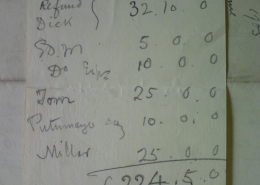 Refund } 32.10.0
Dick
5.0.0
10.0.0
Tom 25.0.0
Putumayo 10.0.0
Millar 25.0.0
224.5.0